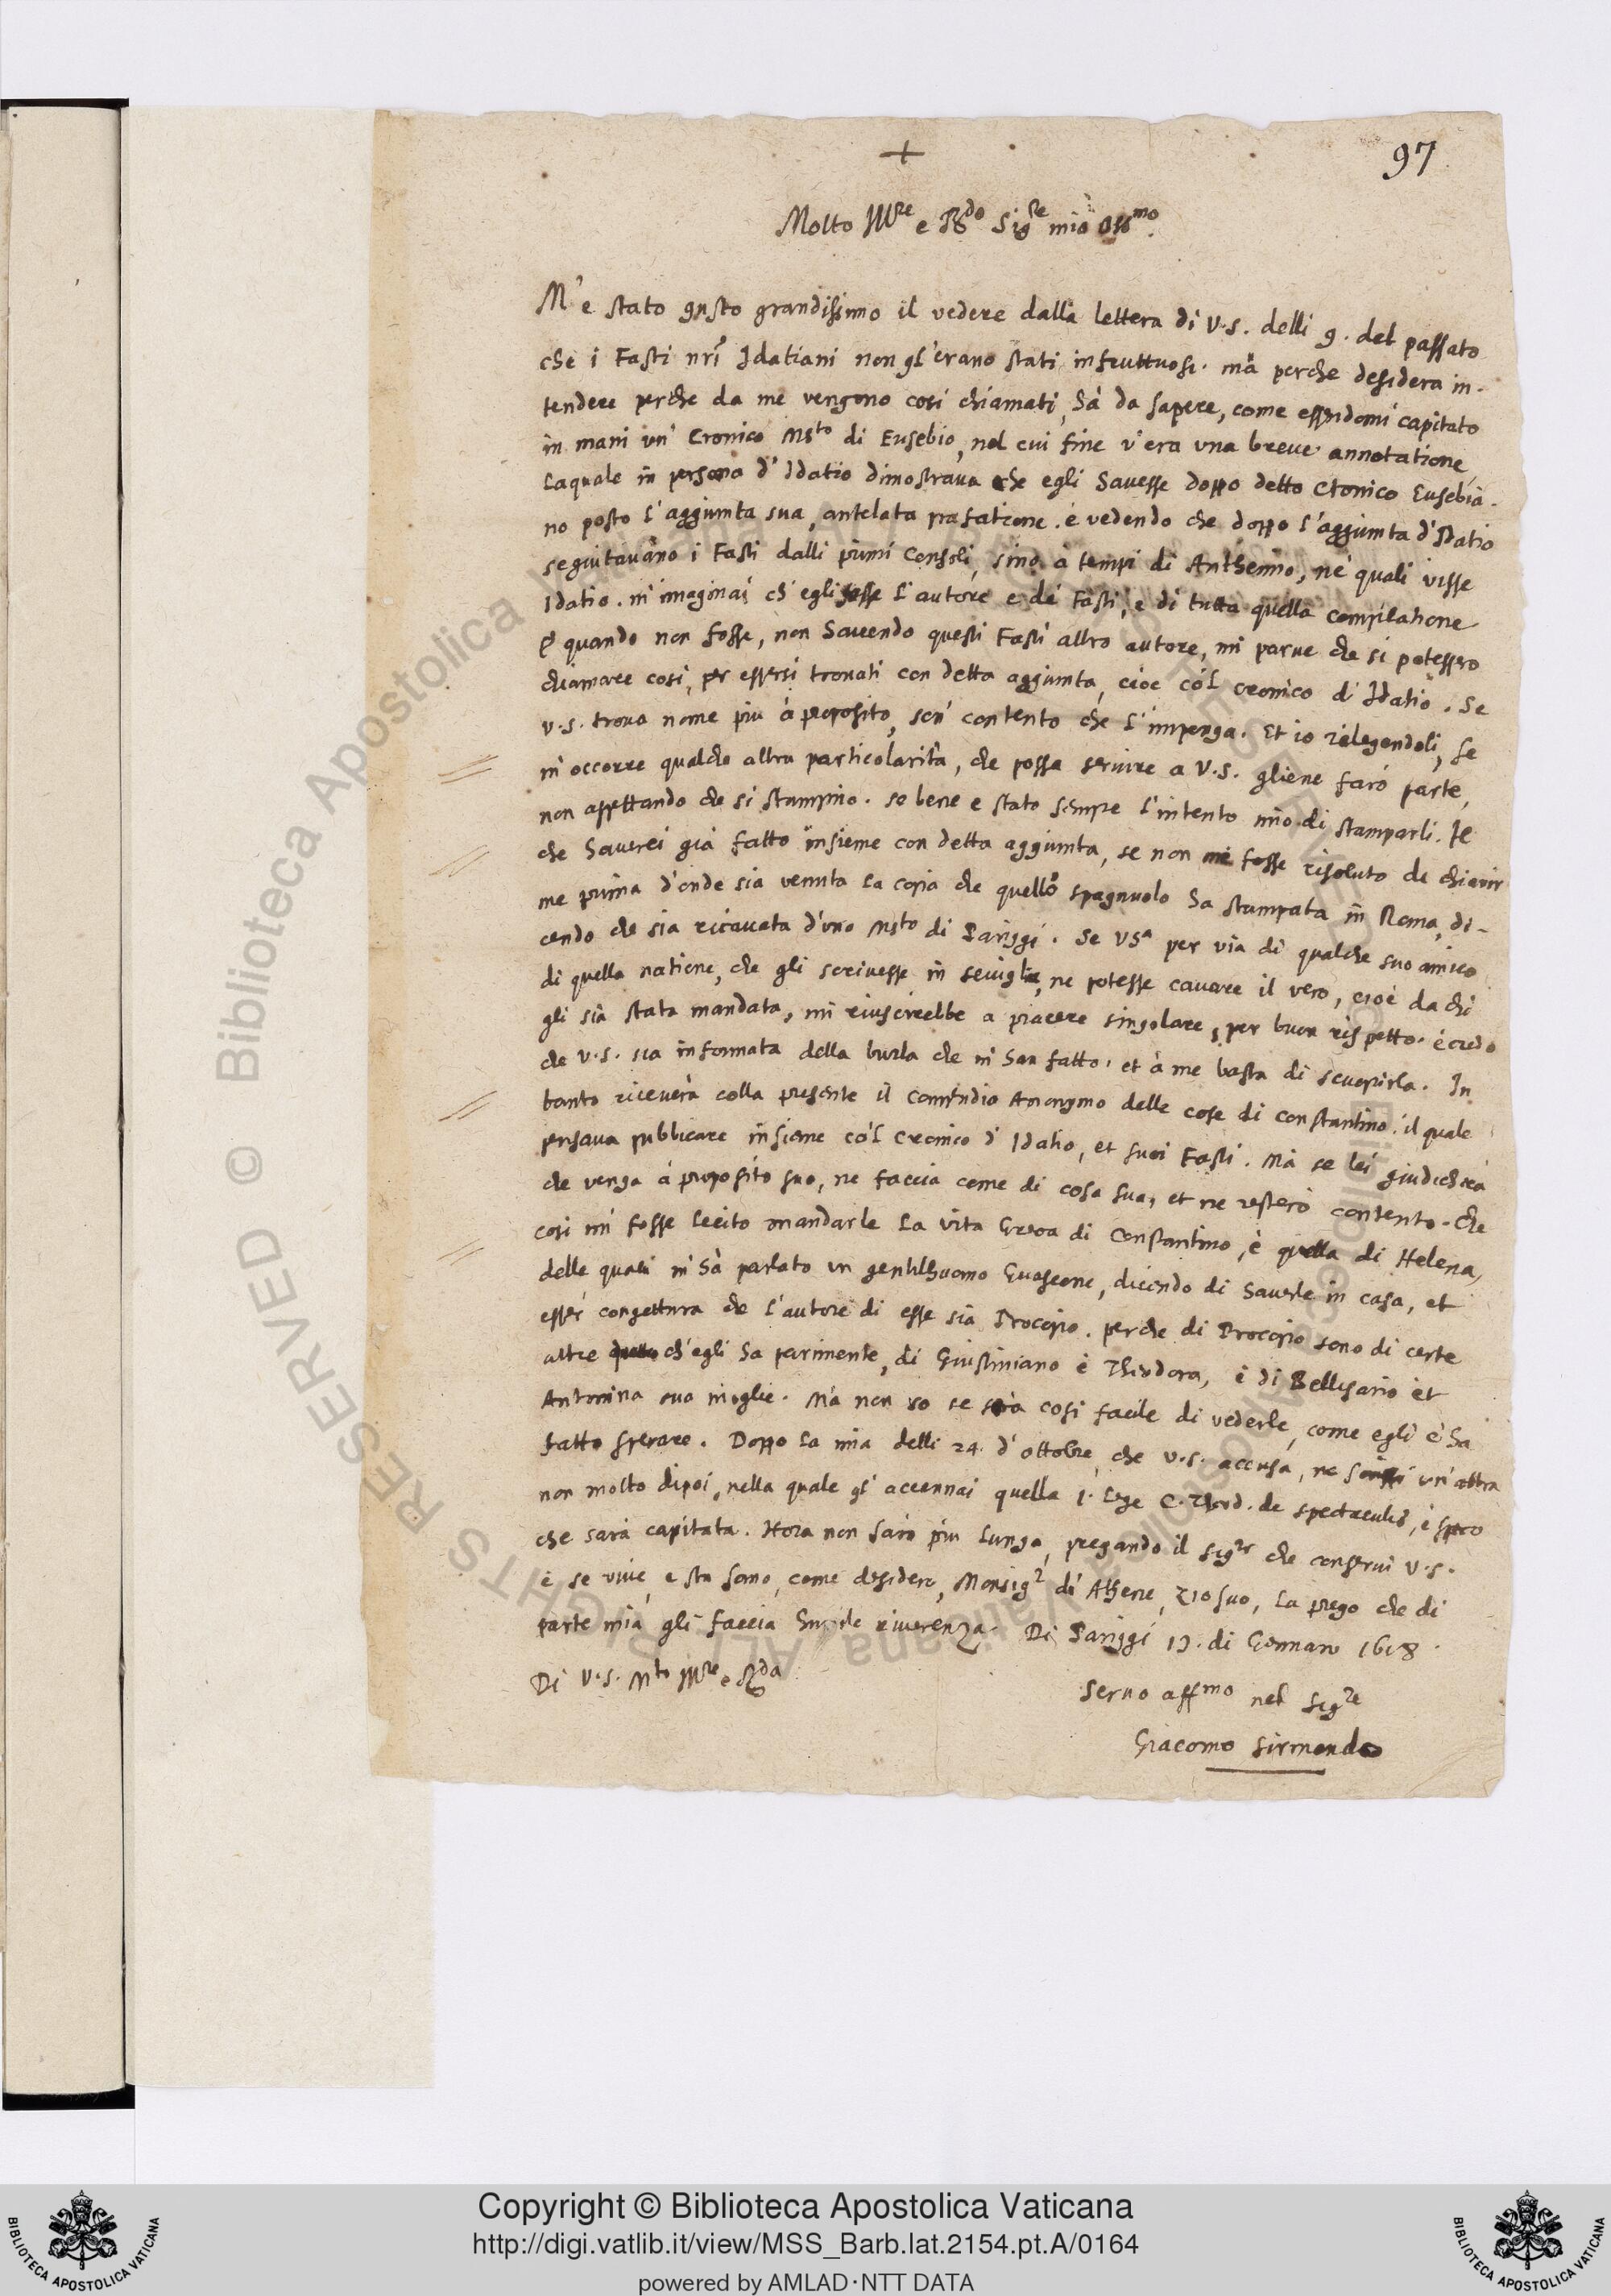 97
+
Molto Ill.re e R.do Sig.re mio oss.mo
M'è stato gusto grandissimo il vedere dalla lettera di V.S. delli 9. del passato
che i Fasti nri Idatiani non gl'erano stati infruttuosi. mà perche desidera in-
tendere perche da me vengono cosi chiamati, hà da sapere, come essendomi capitato
in mani un' Cronico Ms.to di Eusebio, nel cui fine v'era una breve annotatione,
laquale in persona d'Idatio dimostrava che egli havesse doppo detto Cronico Eusebia-
no posto l'aggiunta sua, antelata prafatione. è vedendo che doppo l'aggiunta d'Idatio
seguitavano i Fasti dalli primi Consoli, sino à tempi di Anthemio, ne' quali visse
Idatio. m'imaginai ch'egli fosse l'autore e de' Fasti, e di tutta quella compilatione
E quando non fosse, non havendo questi Fasti altro autore, mi parue che si potessero
chiamare cosi, per essersi trovati con detta aggiunta, cioè co'l cronico d'Idatio. Se
V.S. trova nome piu à proposito, son' contento che l'imponga. Et io rilegendoli, se
m'occorre qualche altra particolarità, che possa servire a V.S. gliene farò parte,
non aspettando che si stampino. se bene e stato sempre l'intento mio di stamparli. Il
che haverei già fatto insieme con detta aggiunta, se non mi fosse risoluto de chiarir
me prima d'onde sia venuta la copia che quello spagnuolo ha stampata in Roma, di-
cendo che sia ricavata d'uno Ms.to di Pariggi. Se VS.a per via di qualche suo amico
di quella natione, che gli scrivesse in seviglia, ne potesse cavare il vero, cioè da chi
gli sia stata mandata, mi riuscirebbe a piacere singolare, per buon rispetto. è credo
che V.S. sia informata della burla che m'han fatto. et à me basta di scuoprirla. In
tanto riceverà colla presente il Compendio Anonymo delle cose di Constantino. il quale
pensava publicare insieme co'l Cronico d'Idatio, et suoi Fasti. Mà se lei giudicherà
che venga à proposito suo, ne faccia come di cosa sua, et ne resterò contento. Che
cosi mi fosse lecito mandarle la vita Greca di Constantino, è quella di Helena,
delle quali m'hà parlato un gentilhuomo Guascone, dicendo di haverle in casa, et
esser congettura che l'autore di esse sia Procopio. perche di Procopio sono di certe
altre ch'egli ha parimente, di Giustiniano è Theodora, è di Bellisario et
Antonina sua moglie. Mà non so se sarà cosi facile di vederle, come egli è hà
fatto sperare. Doppo la mia delli 24. d'ottobre, che V.S. accusa, ne scrissi un'altra
non molto dipoi, nella quale gl'accennai quella l. lege C. Theod. de spectaculis, è spero
che sarà capitata. Hora non sarò piu lungo, pregando il Sig.re che conservi V.S.
è se vive, e sta sano, come desidero, Monsig.r di Athene, zio suo, la prego che di
parte mia gli faccia humile riverenza. Di Pariggi 19. di Gennaro 1618.
Di V.S. M.to Ill.re e R.da
servo aff.mo nel Sig.re
Giacomo Sirmondo
Copyright © Biblioteca Apostolica Vaticana
http://digi.vatlib.it/view/MSS_Barb.lat.2154.pt.A/0164
powered by AMLAD·NTT DATA
BIBLIOTECA APOSTOLICA VATICANA
BIBLIOTECA APOSTOLICA VATICANA